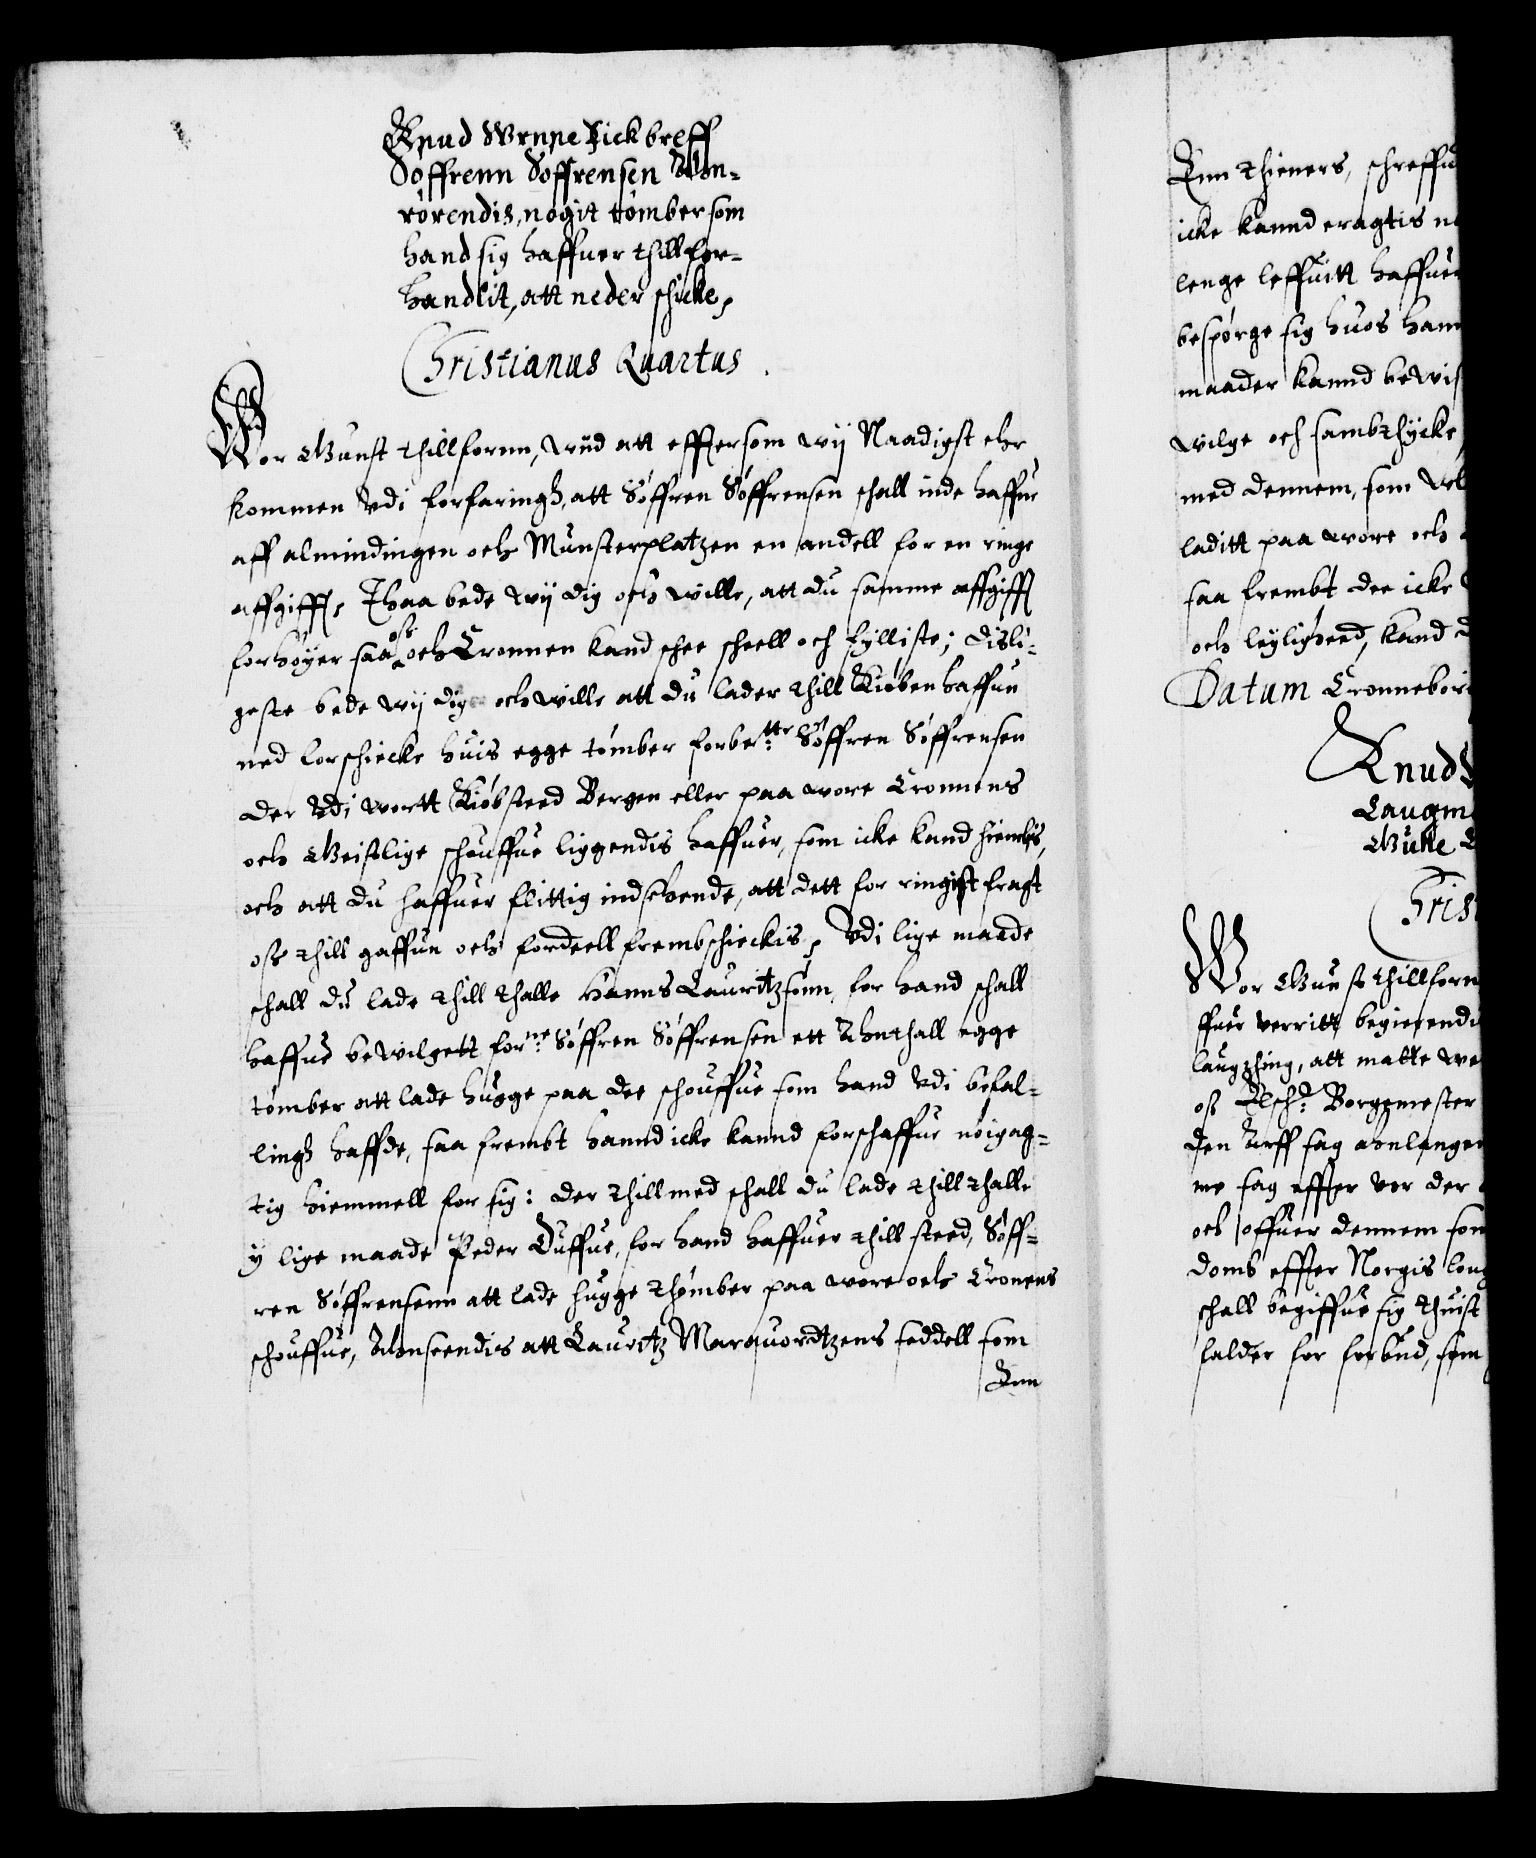 Knud Wrnne Fick breff
Søffrenn Søffrensen Ahn-
rørendis, nogit tømber som
hand sig haffuer thill for-
handlit, att neder schicke,
Christianus Quartus.
Wor Gunst thillfornn, Wiid att effter som wij Naadigst ehr
kommen Udi forfaringh, att Søffren Søffrensen schall inde haffue
aff almindingen och Munsterplatzen en andell for en ringe
affgifft, Thaa bede wij dig och wille, att du samme affgifft
forhøyer saa oss och Cronnen kand schee scheell och fylliste; Disli-
geste bede wij dig och wille att du lader thill Kiøbenhaffun
ned forschicke huis egge tømber forbe:tte Søffren Søffrensen
der Udi wortt Kiøbsteed Bergen eller paa wore Cronnens
och Geistlige schouffue liggendis haffuer, som icke kand hiemlis,
och att du haffuer flittig indseende, att dett for ringist fragt
oss thill gaffun och fordeell frembschickis, Udi lige maade
schall du lade thill thalle Hanns Lauritzsønn, for hand schall
haffue bewilgett for:ne Søffren Søffrensen ett Ahnthall egge
tømber att lade hugge paa dee schouffue som hand Udi befal-
lingh haffde, saa frembt hannd icke kannd forschaffue nøigag-
tig hiemmell for sig: der thillmed schall du lade thillthalle
y lige maade Peder Duffue, for hand haffuer thill steed, Søff-
ren Søffrensenn att lade hugge thømber paa wore och Cronens
schouffue, Ahnseendis att Lauritz Marquordtzens seddell som
Enn
Enn thieners, schreffu
icke kannd eragtis
lenge leffuitt haffuer
bespørge sig huos
maader kannd bewis
wilge och sambthycke,
med dennem, som
laditt paa wore och
saa frembt dee icke
och leylighed, kand
Datum Cronnebor
Knud
Laugm
Gulle
Christ
Wor Gunst thillforn
ffuer berritt begierendis
laugthing, att matte
oss Elsch: Borgemester
den Arff sag ahnlangen
me sag effter vor der
och offuer dennem som
domb effter Norgis loug
schall begiffue sig thuist
falder for forbud, som